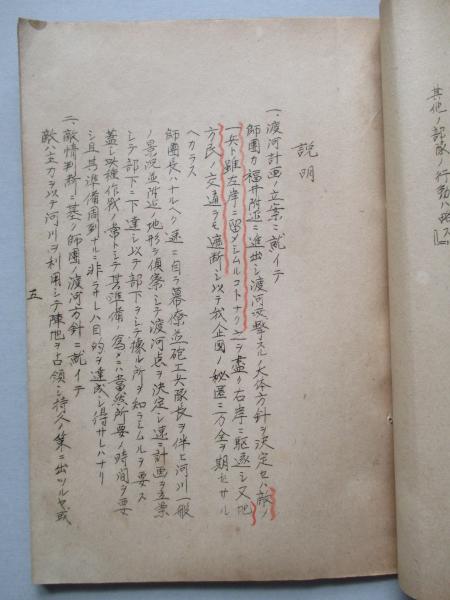 其他ノ部隊ノ行動ハ略ス
説明
一、渡河計画ノ立案ニ就イテ
師團カ福井附近ニ進出シ渡河攻撃スルノ大体方針ヲ決定セハ敵ノ
一兵ト雖左岸ニ留メシムルコトナク之ヲ盡ク右岸ニ駆逐シ又地
方民ノ交通ヲモ遮断シ以テ我企図ノ秘匿ニ万全ヲ期セサル
ヘカラス
師團長ハナルヘク速ニ自ラ幕僚並砲工兵隊長ヲ伴ヒ河川一般
ノ景況並附近ノ地形ヲ偵察シテ渡河点ヲ決定シ速ニ計画ヲ立案
シテ部下ニ下達シ以テ部下ヲシテ據ル所ヲ知ラシムルヲ要ス
蓋シ此種作戦ノ常トシテ其準備ノ為メニハ當然所要ノ時間ヲ要
シ且其準備周到ナルニ非ラサレハ目的ヲ達成シ得サレハナリ
二、敵情判断ニ基ク師團ノ渡河方針ニ就イテ
敵ハ主力ヲ以テ河川ヲ利用シテ陣地ヲ占領シ持久ノ策ニ出ツルヤ或
五